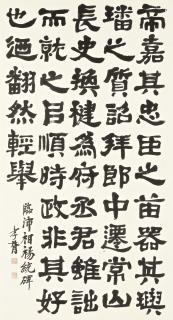 帝嘉其忠臣之苗器其璵
璠之質詔拜郎中遷常山
長史換犍為府丞君雖詘
而就之㠯順時政非其好
也迺翻然輕舉
臨沛相楊統碑
李